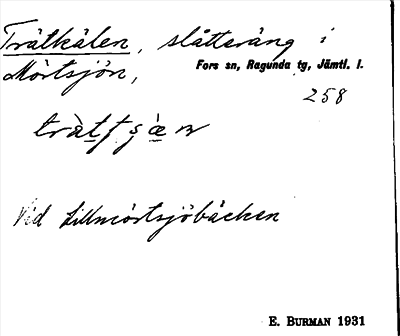 Trätkälen, slåtteräng i
Mörtsjön, Fors sn, Ragunda tg, Jämtl. l.
258
Vid Lillmörtsjöbäcken
E. BURMAN 1931